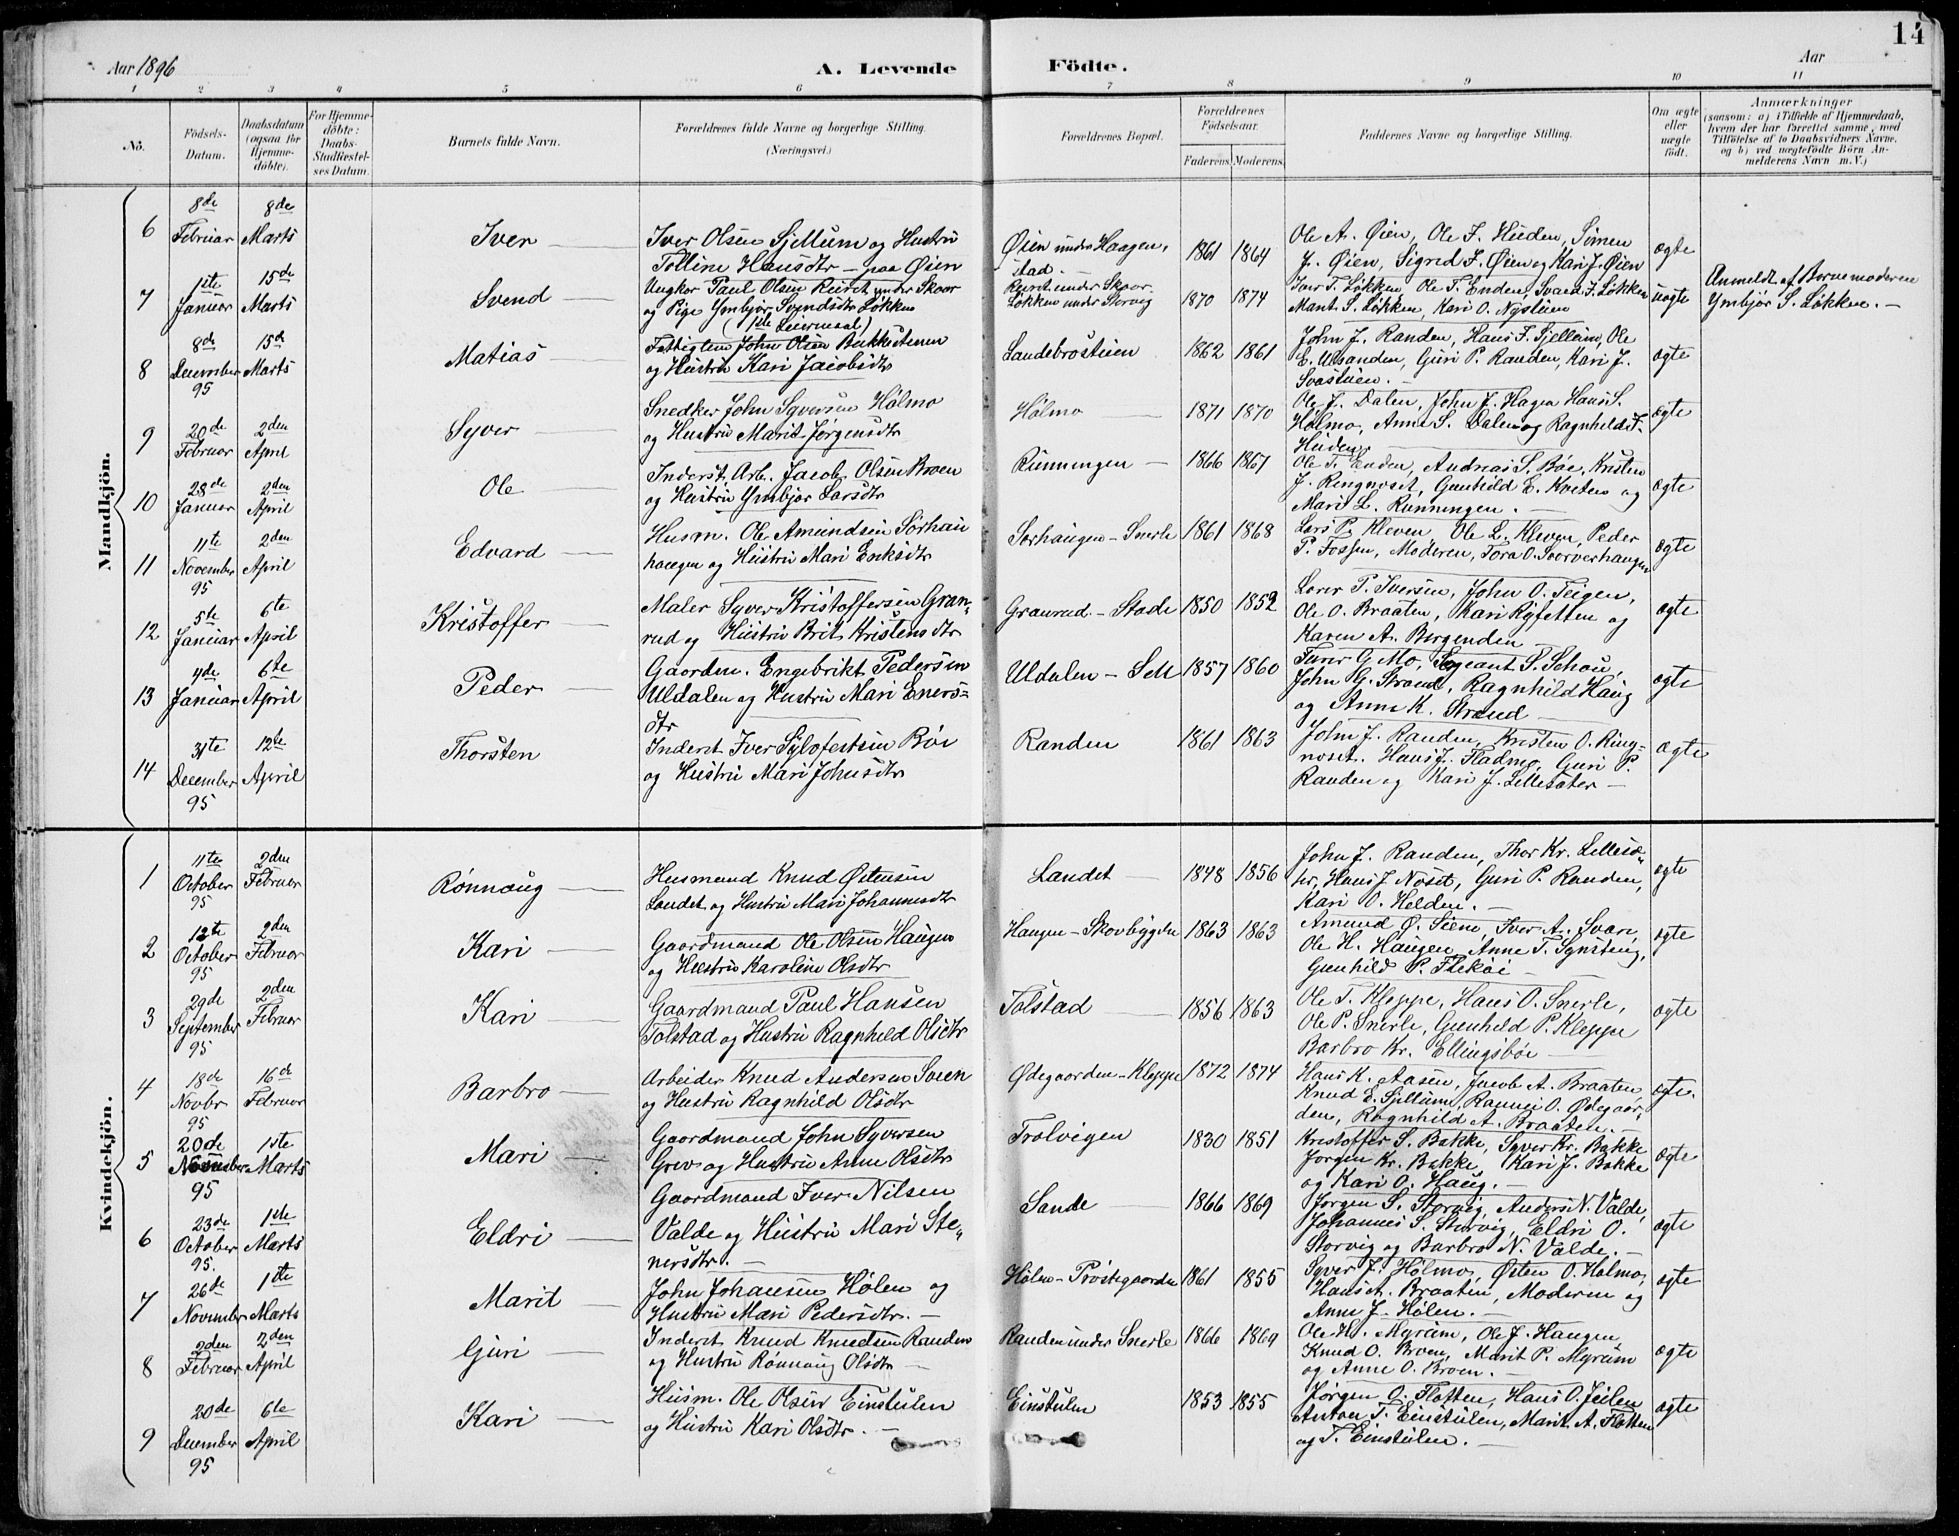 14
Aar 1896
A. Levende
Födte.
Aar
1 2 3 4 5 6 7 8 9 10 11
No.
Födsels-
Datum.
Daabsdatum
(ogsaa för
Hjemme-
döbte).
For Hjemme-
döbte:
Daabs-
Stadfæstel-
ses Datum.
Barnets fulde Navn.
Forældrenes fulde Navne og borgerlige Stilling.
(Næringsvei.)
Forældrenes Bopæl.
Forældrenes
Födselsaar.
Faderens. Moderens.
Faddernes Navne og borgerlige Stilling.
Om ægte
eller
uægte
födt.
Anmærkninger
(saasom: a) i Tilfælde af Hjemmedaab,
hvem der har forrettet samme, med
Tilföielse af to Daabsvidners Navne,
og b) ved uægtefödte Börn An-
melderens Navn m.V.)
Mandkjön.
6
8de
Februar
8de
Marts
Iver
Iver Olsen Sjellum og Hustru
Tolline Hansdtr - paa Øien
Øien under Haagen-
stad
1861 1864
Ole A. Øien, Ole J. Heiden, Simen
J. Øien, Sigrid J. Øien og Kari J. Øien
ægte
7
1ste
Januar
15de
Marts
Svend
Ungkar Paul Olsen Ruset under Skaar
og Pige Ymbjør Svendsdtr Løkken
(1ste Leiermaal)
Ruset under Skaar.
Løkken under Storvig
1870 1874
Iver T. Løkken Ole T. Enden, Svend J. Løkken
Marit S. Løkken, Kari O. Nystuen
uægte
Anmeldt af Barnemoderen
Ymbjør S. Løkken. -
8
8de
December
95
15de
Marts
Matias
Fattiglem John Olsen Bakkestenen
og Hustru Kari Jacobsdtr
Sandebrostuen
1862 1861
John J. Randen, Hans J. Sjellum, Ole
E. Ulsanden, Guri P. Randen, Kari J.
Svastuen. -
ægte
9
20de
Februar
2den
April
Syver
Snedker John Syversen Hølmo
og Hustru Marit Jørgensdtr
Hølmo
1871 1870
Ole J. Dalen, John J. Hagen Hans S.
Hølmo, Anne S. Dalen og Ragnhild J.
Heiden.
ægte
10
28de
Januar
2den
April
Ole
Inderst. Arb. Jacob Olsen Broen
og Hustru Ymbjør Larsdtr
Runningen
1866 1867
Ole T. Enden, Andreas S. Bøe, Kristen
J. Ringnoset, Gunhild E. Kveten og
Marit L. Runningen. -
ægte
11
11te
November
95
2den
April
Edvard
Husm. Ole Amundsen Sørhau
haugen og Hustru Mari Eriksdtr
Sørhaugen - Snerle
1861 1868
Lars P. Kleven Ole L. Kleven, Peder
P. Fossen, Moderen, Tora O. Sorverhaugen
ægte
12
5te
Januar
6te
April
Kristoffer
Maler Syver Kristoffersen Gran-
rud og Hustru Brit Kristensdtr
Granrud - Stade
1850 1852
Lars P. Iversen, John O. Teigen,
Ole O. Braaten, Kari Ryfetten og
Karen A. Borgenden
ægte
13
4de
Januar
6te
April
Peder
Gaardm. Engebrikt Pedersen
Uldalen og Hustru Mari Eners=
dtr
Uldalen - Sell
1857 1860
Turer G. Mo, Sergeant S. Schou,
John G. Strand, Ragnhild Haug
og Anne K. Strand
ægte
14
31te
December
95
12te
April
Thorsten
Inderst. Iver Sylfestsen Bøe
og Hustru Mari Johnsdtr
Randen
1861 1863
John J. Randen, Kristen O. Ring-
noset. Hans J. Fladmo, Guri P.
Randen og Kari J. Lillesæter -
ægte
Kvindekjön.
1
11te
October
95
2den
Februar
Rønnaug
Husmand Knud Østensen
Landet og Hustru Mari Johannesdtr
Landet
1848 1856
John J. Randen, Thor Kr. Lillesæ-
ter, Hans J. Noset, Guri P. Randen,
Kari O. Helden. -
ægte
2
12te
October
95
2den
Februar
Kari
Gaardmand Ole Olsen Haugen
og Hustru Karoline Olsdtr
Haugen - Skovbygden
1863 1863
Amund Ø. Siem, Iver A. Svare,
Ole H. Haugen, Anne T. Synsteng,
Gunhild P. Flekøi -
ægte
3
29de
September
95
2den
Februar
Kari
Gaardmand Paul Hansen
Tolstad og Hustru Ragnhild Olsdtr
Tolstad
1856 1863
Ole T. Kleppe, Hans O. Snerle,
Ole P. Snerle, Gunhild P. Kleppe
Barbro Kr. Ellingsbøe
ægte
4
18de
Novbr
95
16de
Februar
Barbro
Arbeider Knud Andersen Soren
og Hustru Ragnhild Olsdtr
Ødegaarden - Kleppe
1872 1874
Hans K. Aasen, Jacob A. Braaten
Knud E. Sjellum, Rannei O. Ødegaar-
den, Ragnhild A. Braaten. -
ægte.
5
20de
November
95
1ste
Marts
Mari
Gaardmand John Syversen
Grev og Hustru Anne Olsdtr
Trolvigen
1830 1851
Kristoffer S. Bakke, Syver Kr. Bakke
Jørgen Kr. Bakke, Kari J. Bakke
og Kari O. Haug. -
ægte
6
23de
October
95.
1ste
Marts
Eldri
Gaardmand Iver Nilsen
Valde og Hustru Mari Ste-
nersdtr. -
Sande
1866 1869
Jørgen S. Storvig, Anders N. Valde,
Johannes S. Storvig, Eldri O.
Storvig og Barbro N. Valde. -
ægte
7
26de
November
1ste
Marts
Marit
John Johansen Hølen og
Hustru Mari Pedersdtr. -
Hølen - Præstegaarden
1861 1855
Syver J. Hølmo, Østen O. Hølmo,
Hans A. Braaten, Moderen og
Anne J. Hølen. -
ægte
8
2den
Februar
2den
April
Guri
Inderst Knud Knudsen Randen
og Hustru Rønnaug Olsdtr
Randen under Snerle
1866 1869
Ole H. Myrum, Ole J. Haugen
Knud O. Broen, Marit P. Myrum
og Anne O. Broen. -
ægte
9
20de
December
95
6te
April
Kari
Husm. Ole Olsen Einstulen
og Hustru Kari Olsdtr. -
Einstulen
1853 1855
Jørgen O. Flotten, Hans O. Jeilen
Anton T. Einstulen, Marit A. Flotten
og T. Einstulen. -
ægte